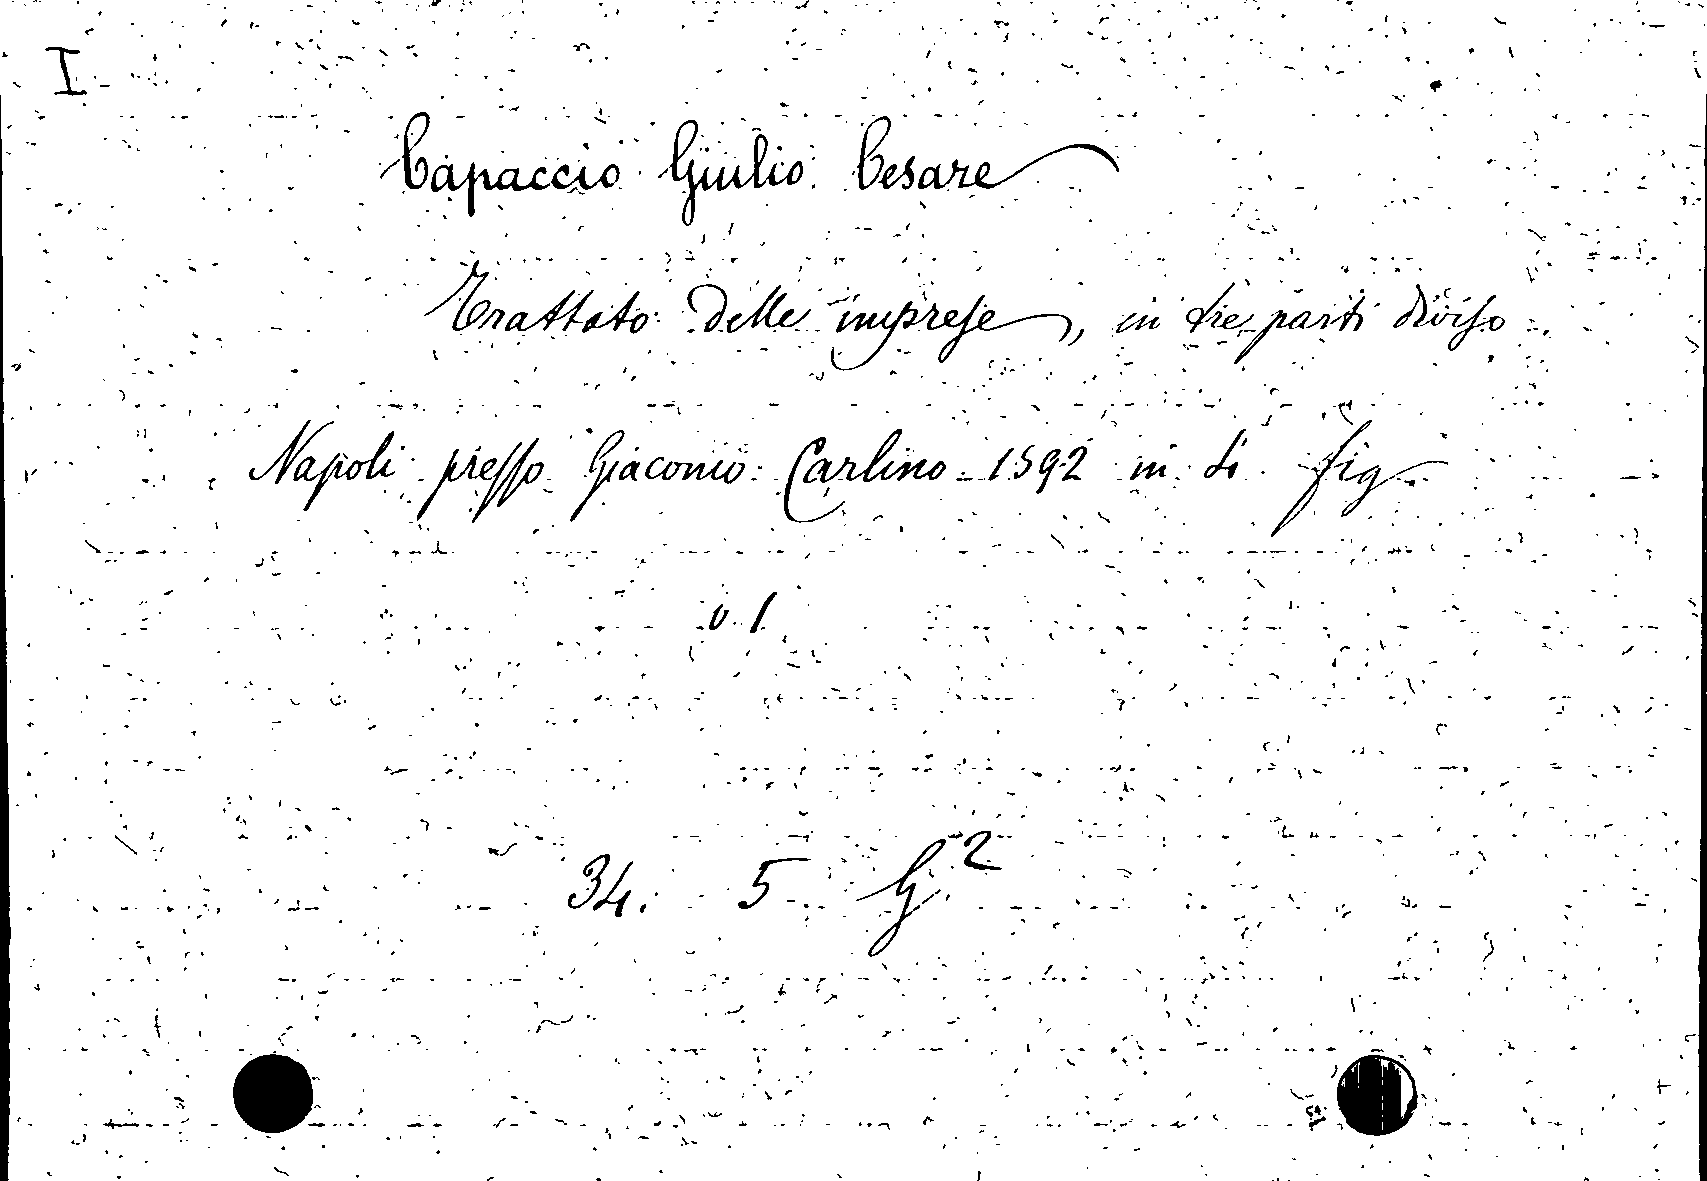 I
Capaccio Giulio Cesare
Trattato delle imprese, in tre parti diviso
Napoli presso Giacomo Carlino 1592 in 4° fig
v. 1
34. 5 G.2